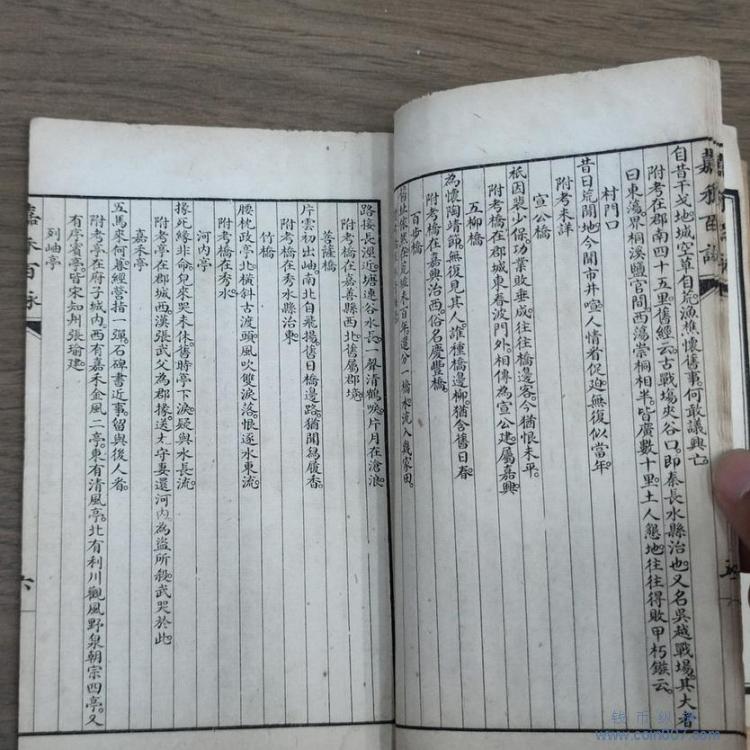 嘉禾百詠
自昔干戈地。城空草自荒。漁樵懷舊事。何敢議興亡。
附考在郡南四十五里。舊經云。古戰場夾谷口。即秦長水縣治也。又名吳越戰場。其大者
曰東蕩。界桐溪鹽官間。西蕩崇桐相半。皆廣數十里。土人懇地。往往得敗甲朽鏃云。
村門口
昔日荒閒地。今聞市井喧。人情看促迫。無復似當年。
附考未詳
宣公橋
祇因裴少保。功業敗垂成。往往橋邊客。今猶恨未平。
附考橋在郡城東春波門外。相傳為宣公建。屬嘉興
五柳橋
為懷陶靖節。無復見其人。誰種橋邊柳。猶含舊日春
附考橋在嘉興治西。俗名慶豐橋
百步橋
未百年。還分一橋水。流入幾家田。
路接長涇近。塘連谷水長。一聲清鶴唳。片月在滄浪。
附考橋在嘉善縣西北。舊屬郡境
菩薩橋
片雲初出岫。南北自飛揚。舊日橋邊路。猶聞舄履香。
附考橋在秀水縣治東
竹橋
腰枕政亭北。橫斜古渡頭。風吹雙淚落。恨逐水東流
附考橋在秀水
河內亭
掾死緣非命。兒來哭未休。舊時亭下淚。疑與水長流
附考亭在郡城西。漢張武父為郡掾。送太守妻還河內。為盜所殺。武哭於此
嘉禾亭
五馬來何暮。經營指一彈。石碑書近事。留與後人看。
附考亭在府子城內。西有嘉禾金風二亭。東有清風亭。北有利川觀風野泉朝宗四亭。又
有序賓亭。皆宋知州張瑜建
列岫亭
嘉禾百詠
六
钱币纵横
www.coin007.com